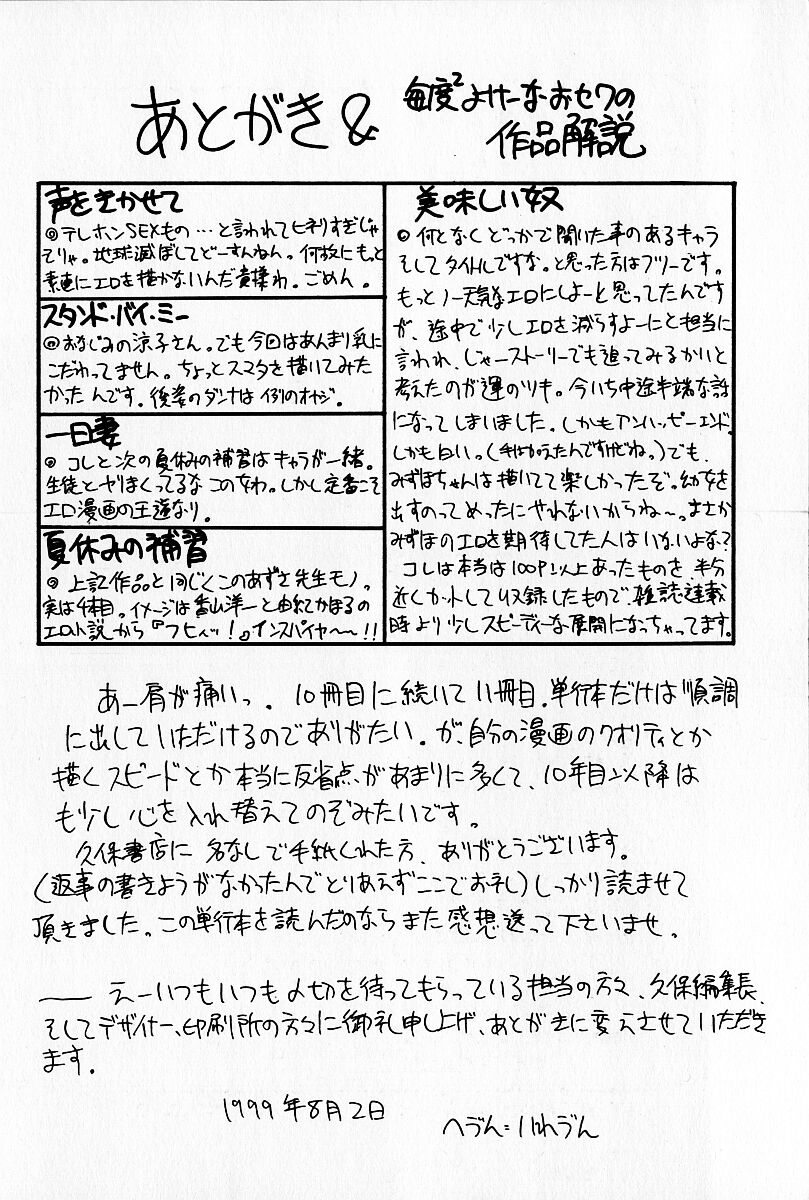 あとがき&
毎度²よけーなおセワの
作品解説
声をきかせて
◎テレホンSEXもの…と言われてヒネリすぎじゃ
そりゃ。地球滅ぼしてどーすんねん。何故にもっと
素直にエロを描かないんだ貴様わ。ごめん。
スタンド・バイ・ミー
◎おなじみの涼子さん。でも今回はあんまり乳に
こだわってません。ちょっとスマタを描いてみた
かったんです。後姿のダンナは例のオヤジ。
一日妻
◎コレと次の夏休みの補習はキャラが一緒。
生徒とヤりまくってるなこの女わ。しかし定番こそ
エロ漫画の王道なり。
夏休みの補習
◎上記作品と同じくこのあずさ先生モノ。
実は4本目。イメージは香山洋一と由紀かほるの
エロ小説から『フヒィッ!』インスパイヤ〜〜!!
美味しい奴
◎何となくどっかで聞いた事のあるキャラ
そしてタイトルですな。と思った方はフツーです。
もっとノー天気なエロにしよーと思ってたんです
が、途中で少しエロを減らすよーにと担当に
言われ、じゃーストーリーでも追ってみるかいと
考えたのが運のツキ。今いち中途半端な話
になってしまいました。しかもアンハッピーエンド。
しかも白い。(手は加えたんですけどね。)でも、
みずほちゃんは描いてて楽しかったぞ。幼女を
出すのってめったにやれないからね〜。まさか
みずほのエロを期待してた人はいないよな?
コレは本当は100P以上あったものを半分
近くカットして収録したもので、雑誌連載
時より少しスピーディーな展開になっちゃってます。
あー肩が痛いっ。10冊目に続いて11冊目。単行本だけは順調
に出していただけるのでありがたい。が、自分の漫画のクオリティとか
描くスピードとか本当に反省点があまりに多くて、10年目以降は
も少し心を入れ替えてのぞみたいです。
久保書店に名なしで手紙くれた方、ありがとうございます。
(返事の書きようがなかったんでとりあえずここでお礼)しっかり読ませて
頂きました。この単行本を読んだのならまた感想送って下さいませ。
――えーいつもいつも〆切を待ってもらっている担当の方々、久保編集長、
そしてデザイナー、印刷所の方々に御礼申し上げ、あとがきに変えさせていただき
ます。
1999年8月2日
へづん=ハれづん